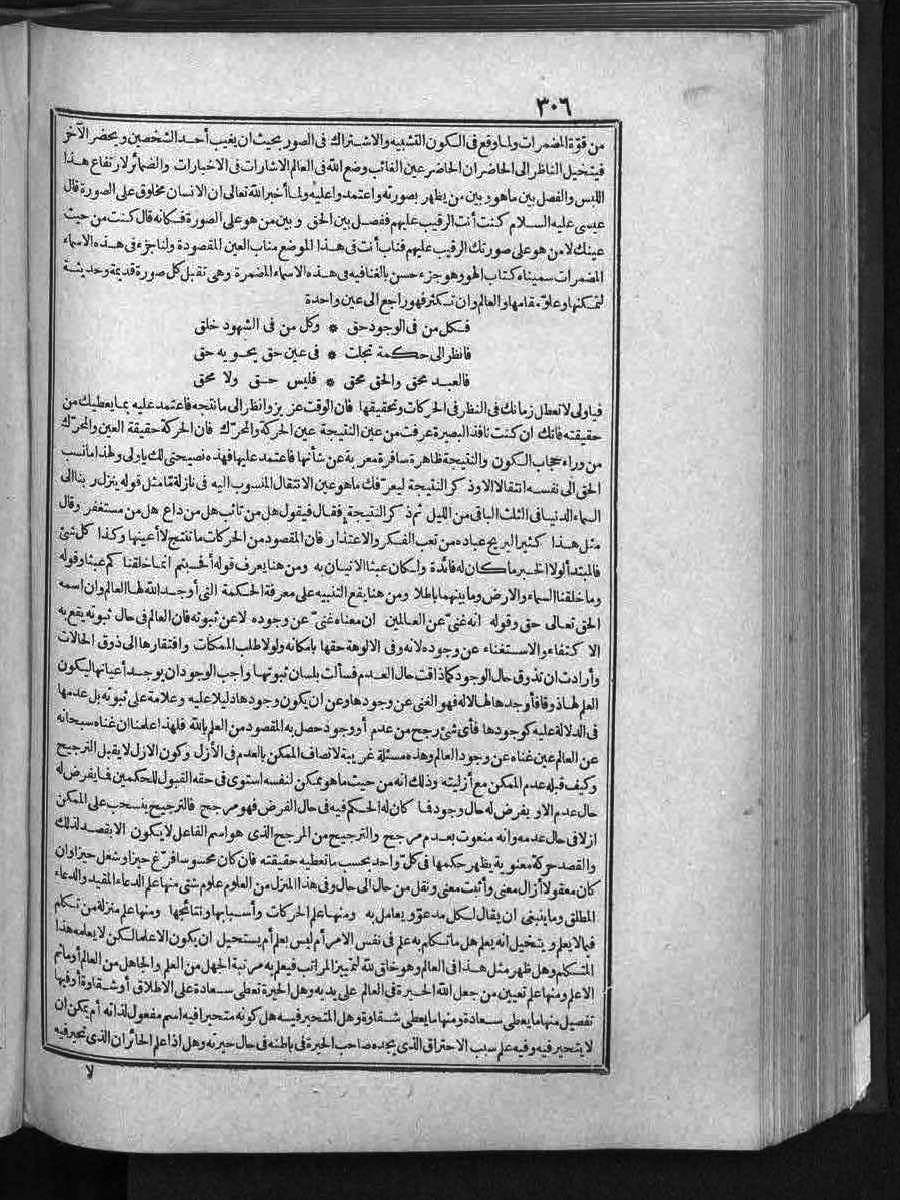 ٣٠٦
من قوة المضمرات ولما وقع فى الكون التشبيه والاشتراك فى الصور بحيث ان يغيب أحد الشخصين ويحضر الآخر
فيتخيل الناظر الى الحاضر ان الحاضر عين الغائب وضع الله فى العالم الاشارات فى الاخبارات والضمائر لارتفاع هذا
اللبس والفصل بين ما هو وبين من يظهر بصورته واعتمدوا عليه ولما أخبر الله تعالى ان الانسان مخلوق على الصورة قال
عيسى عليه السلام كنت أنت الرقيب عليهم ففصل بين الحق وبين من هو على الصورة فكانه قال كنت من حيث
عينك لا من هو على صورتك الرقيب عليهم فناب أنت فى هذا الموضع مناب العين المقصودة ولنا جزء فى هذه الاسماء
المضمرات سميناه كتاب الهو وهو جزء حسن بالغنا فيه فى هذه الاسماء المضمرة وهى تقبل كل صورة قديمة وحديثة
لتمكنها وعلوّ مقامها والعالم وان تكثر فهو راجع الى عين واحدة
فكل من فى الوجود حق * وكل من فى الشهود خلق
فانظر الى حكمة تجلت * فى عين حق يحويه حق
فالعبد محق والحق محق * فليس حق ولا محق
فيا ولى لا تعطل زمانك فى النظر فى الحركات وتحقيقها فان الوقت عزيز وانظر الى ما تنتجه فاعتمد عليه بما يعطيك من
حقيقته فانك ان كنت نافذ البصيرة عرفت من عين النتيجة عين الحركة والمحرّك فان الحركة حقيقة العين والمحرّك
من وراء حجاب الكون والنتيجة ظاهرة سافرة معربة عن شأنها فاعتمد عليها فهذه نصيحتى لك يا ولى ولهذا ما نسب
الحق الى نفسه انتقالا الا وذكر النتيجة ليعرّفك ما هو عين الانتقال المنسوب اليه فى نازلة مّا مثل قوله ينزل ربنا الى
السماء الدنيا فى الثلث الباقى من الليل ثم ذكر النتيجة فقال فيقول هل من تائب هل من داع هل من مستغفر وقال
مثل هذا كثيرا ليريح عباده من تعب الفكر والاعتذار فان المقصود من الحركات ما تنتج لا أعيانها وكذا كل شئ
فالمبتدأ لولا الخبر ما كان له فائدة ولكان عبثا الاتيان به ومن هنا يعرف قوله أفحسبتم انما خلقناكم عبثا وقوله
وما خلقنا السماء والارض وما بينهما باطلا ومن هنا يقع التنبيه على معرفة الحكمة التى أوجد الله لها العالم وان اسمه
الحق تعالى حق وقوله انه غنىّ عن العالمين ان معناه غنىّ عن وجوده لا عن ثبوته فان العالم فى حال ثبوته يقع به
الاكتفاء والاستغناء عن وجوده لانه وفى الالوهة حقها بامكانه ولولا طلب الممكنات وافتقارها الى ذوق الحالات
وأرادت ان تذوق حال الوجود كما ذاقت حال العدم فسألت بلسان ثبوتها واجب الوجود ان يوجد أعيانها ليكون
العلم لها ذوقا فأوجدها لها لا له فهو الغنى عن وجودها وعن ان يكون وجودها دليلا عليه وعلامة على ثبوته بل عدمها
فى الدلالة عليه كوجودها فأى شئ رجح من عدم أو وجود حصل به المقصود من العلم بالله فلهذا علمنا ان غناه سبحانه
عن العالم عين غناه عن وجود العالم وهذه مسئلة غريبة لاتصاف الممكن بالعدم فى الأزل وكون الازل لا يقبل الترجيح
وكيف قبله عدم الممكن مع أزليته وذلك انه من حيث ما هو ممكن لنفسه استوى فى حقه القبول للحكمين فما يفرض له
حال عدم الا ويفرض له حال وجود فما كان له الحكم فيه فى حال الفرض فهو مرجح فالترجيح ينسحب على الممكن
ازلا فى حال عدمه وانه منعوت بعدم مرجح والترجيح من المرجح الذى هو اسم الفاعل لا يكون الا بقصد لذلك
والقصد حركة معنوية يظهر حكمها فى كلّ واحد بحسب ما تعطيه حقيقته فان كان محسوسا فرّغ حيزا وشغل حيزا وان
كان معقولا أزال معنى وأثبت معنى ونقل من حال الى حال وفى هذا المنزل من العلوم علوم شتى منها علم الدعاء المقيد والدعاء
المطلق وما ينبغى ان يقال لكل مدعوّ ويعامل به ومنها علم الحركات وأسبابها ونتائجها ومنها علم منزلة من تكلم
فيما لا يعلم ويتخيل انه يعلم هل ما تكلم به علم فى نفس الامر أم ليس بعلم أم يستحيل ان يكون الا علما لكن لا يعلمه هذا
المتكلم وهل ظهر مثل هذا فى العالم وهو خلق لله لتمييز المراتب فيعلم به مرتبة الجهل من العلم والجاهل من العالم أو ما ثم
الا علم ومنها علم تعيين من جعل الله الحيرة فى العالم على يديه وهل الحيرة تعطى سعادة على الاطلاق أو شقاوة أو فيها
تفصيل منها ما يعطى سعادة ومنها ما يعطى شقاوة وهل المتحير فيه هل كونه متحيرا فيه اسم مفعول لذاته أم يمكن ان
لا يتحير فيه وفيه علم سبب الاحتراق الذى يجده صاحب الحيرة فى باطنه فى حال حيرته وهل اذا علم الحائر ان الذى تحير فيه
لا